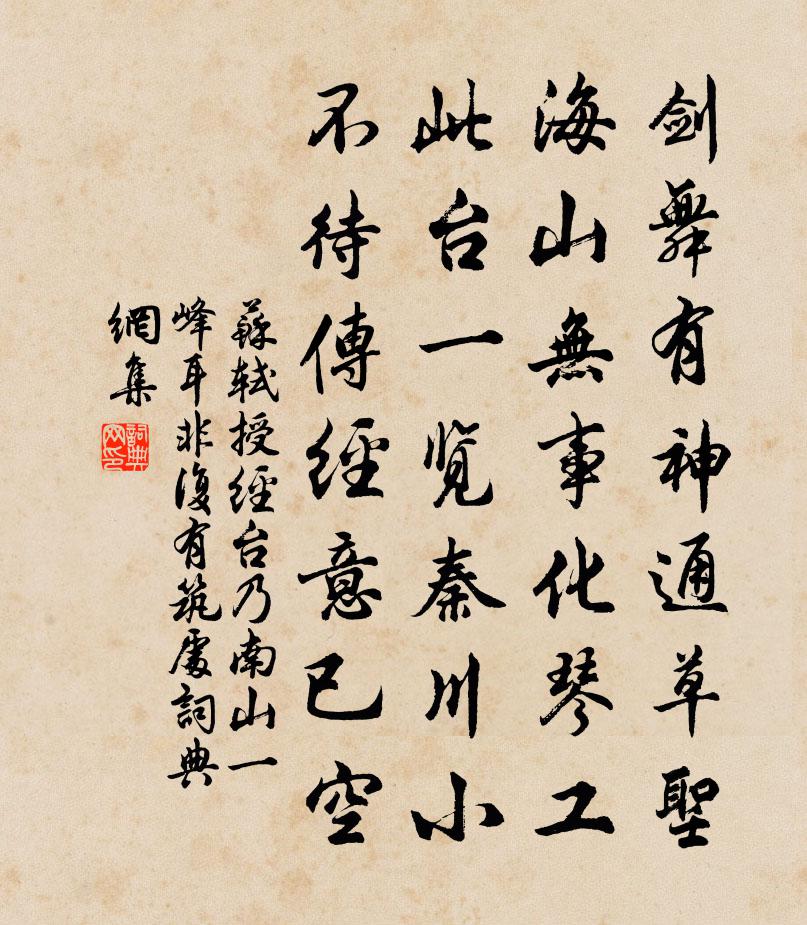 剑舞有神通草聖
海山無事化琴工
此台一览秦川小
不待傳經意已空
蘇軾授經台乃南山一
峰耳非復有筑處詞典
網集
詞典
网印